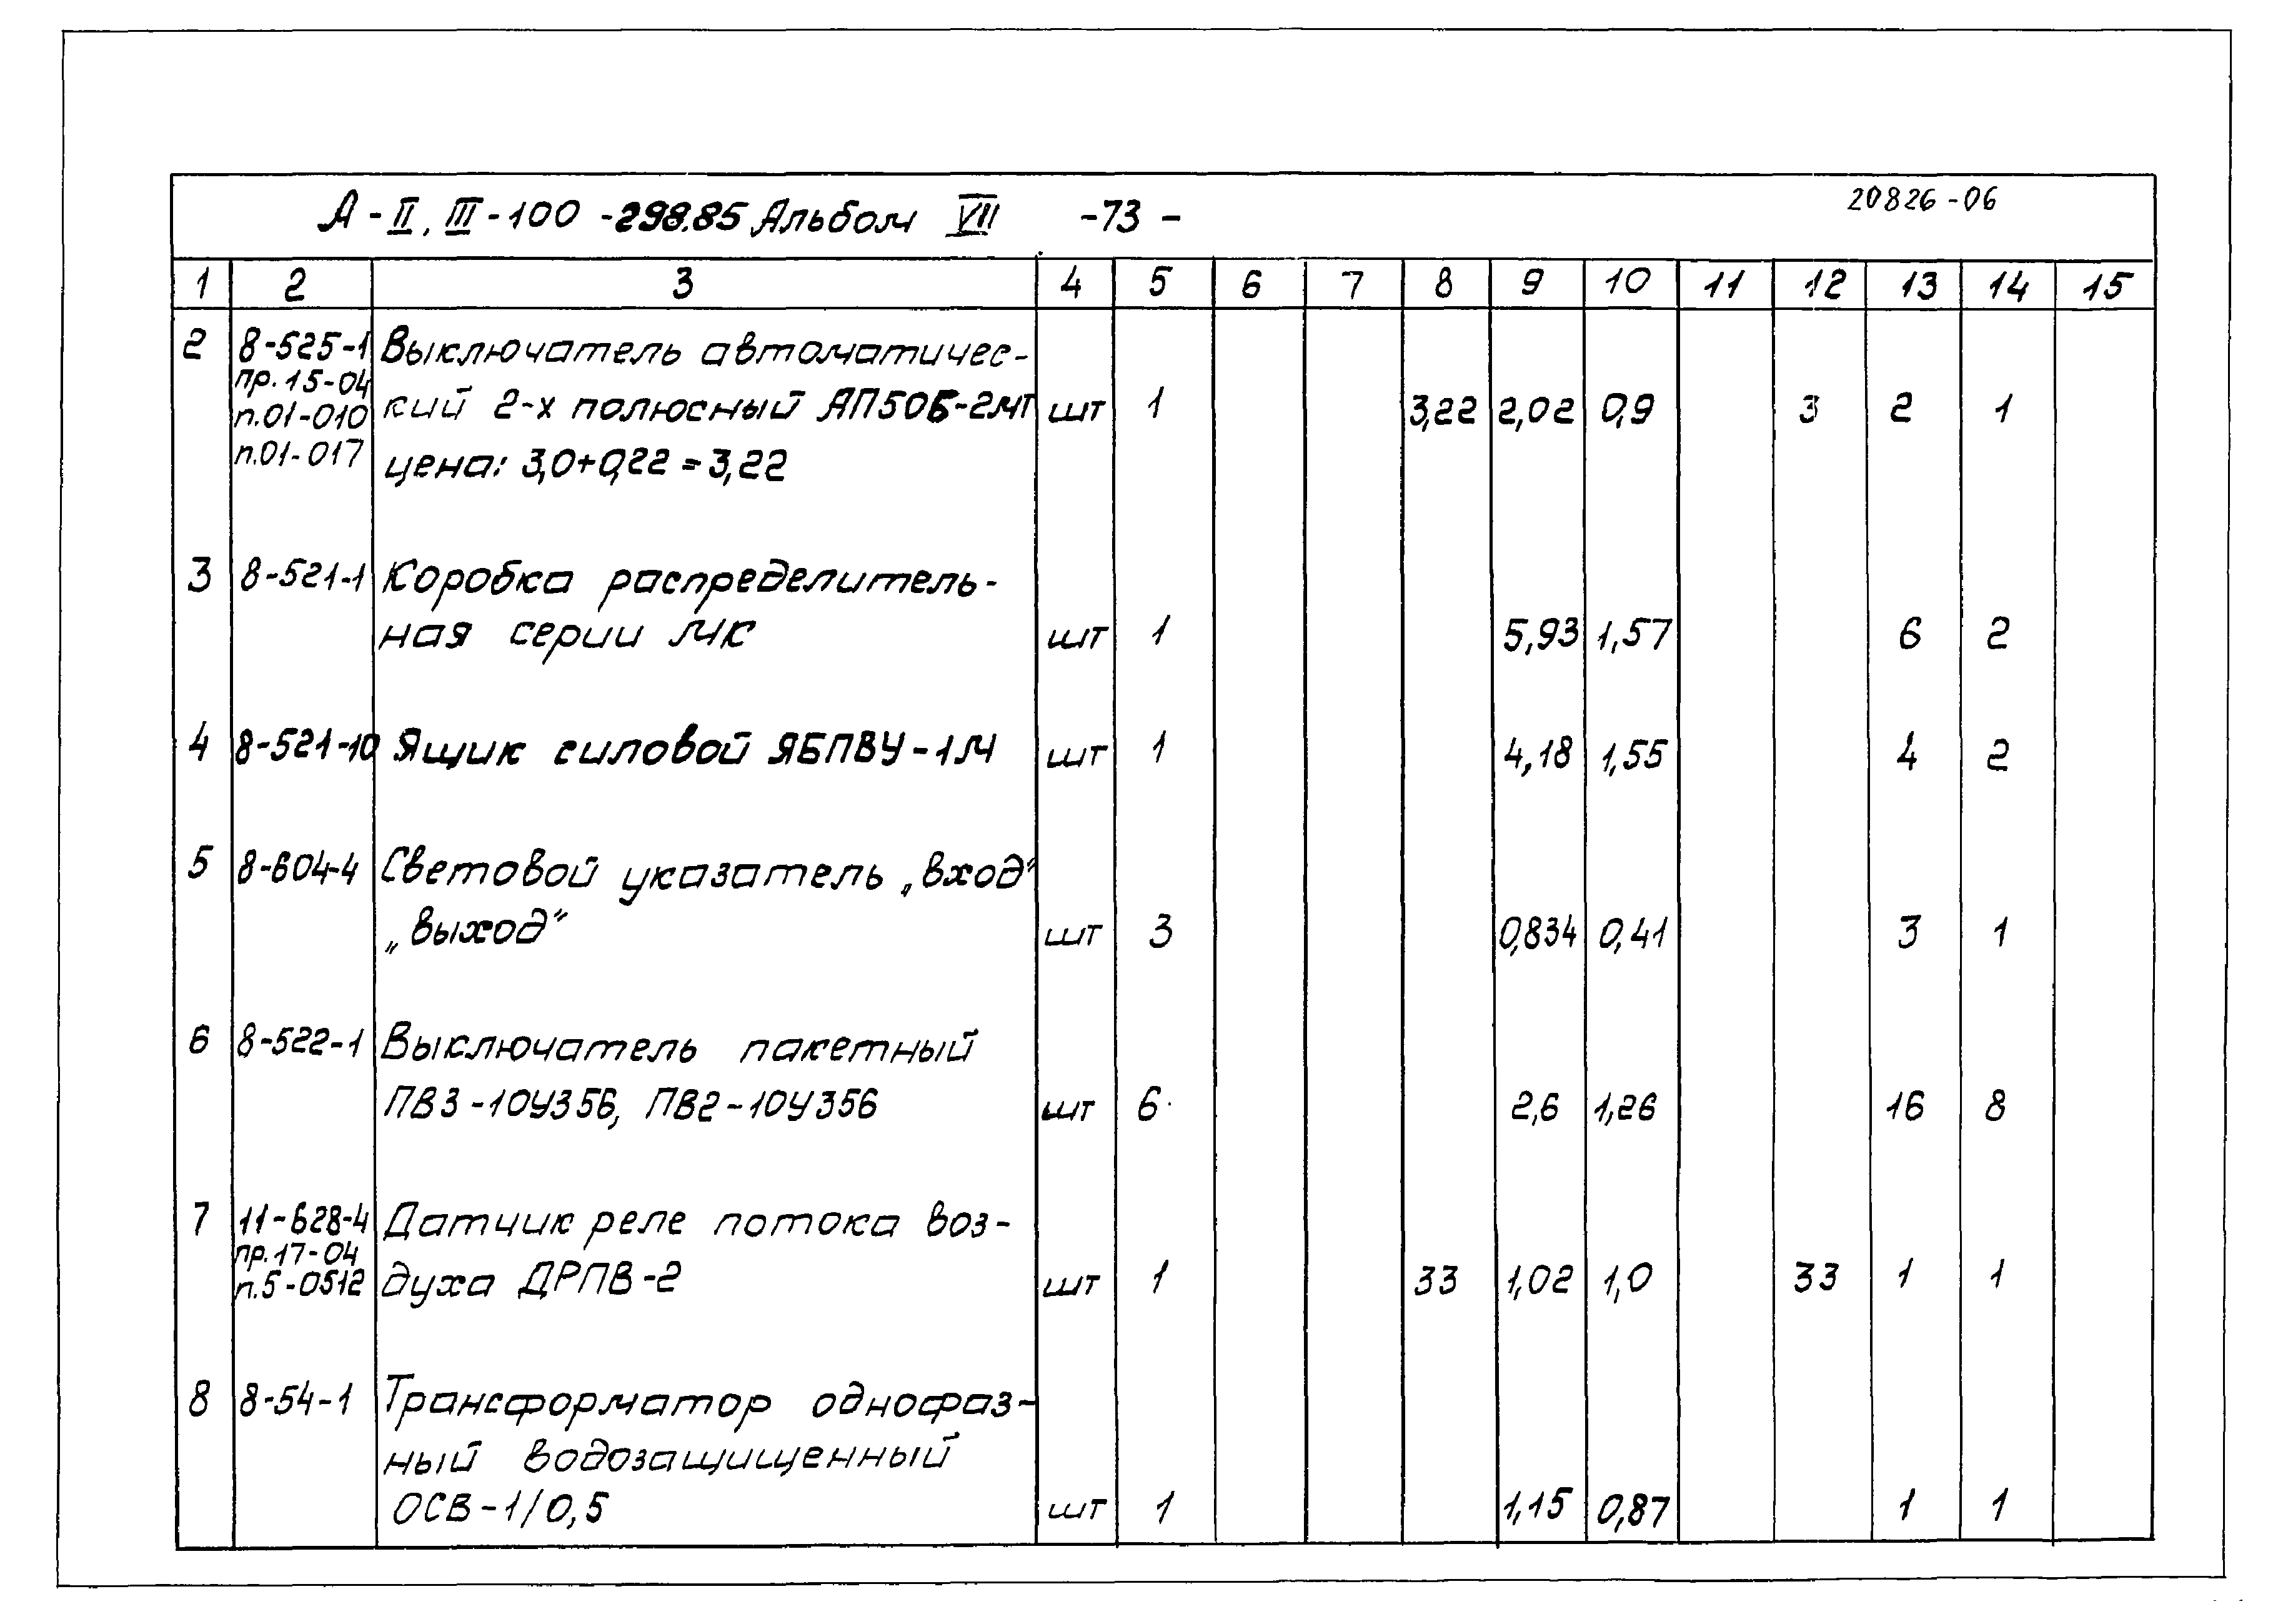 А-II, III-100-298.85 Альбом VII -73- 20826-06
1 2 3 4 5 6 7 8 9 10 11 12 13 14 15
2 8-525-1 Выключатель автоматичес-
пр.15-04
п.01-010 кий 2-х полюсный АП50Б-2МТ шт 1 3,22 2,02 0,9 3 2 1
п.01-017 цена: 3,0+0,22=3,22
3 8-521-1 Коробка распределитель-
ная серии МК шт 1 5,93 1,57 6 2
4 8-521-10 Ящик силовой ЯБПВУ-1М шт 1 4,18 1,55 4 2
5 8-604-4 Световой указатель „вход"
„выход" шт 3 0,834 0,41 3 1
6 8-522-1 Выключатель пакетный
ПВ3-10У356, ПВ2-10У356 шт 6 2,6 1,26 16 8
7 11-628-4 Датчик реле потока воз-
пр.17-04
п.5-0512 духа ДРПВ-2 шт 1 33 1,02 1,0 33 1 1
8 8-54-1 Трансформатор однофаз-
ный водозащищенный
ОСВ-1/0,5 шт 1 1,15 0,87 1 1